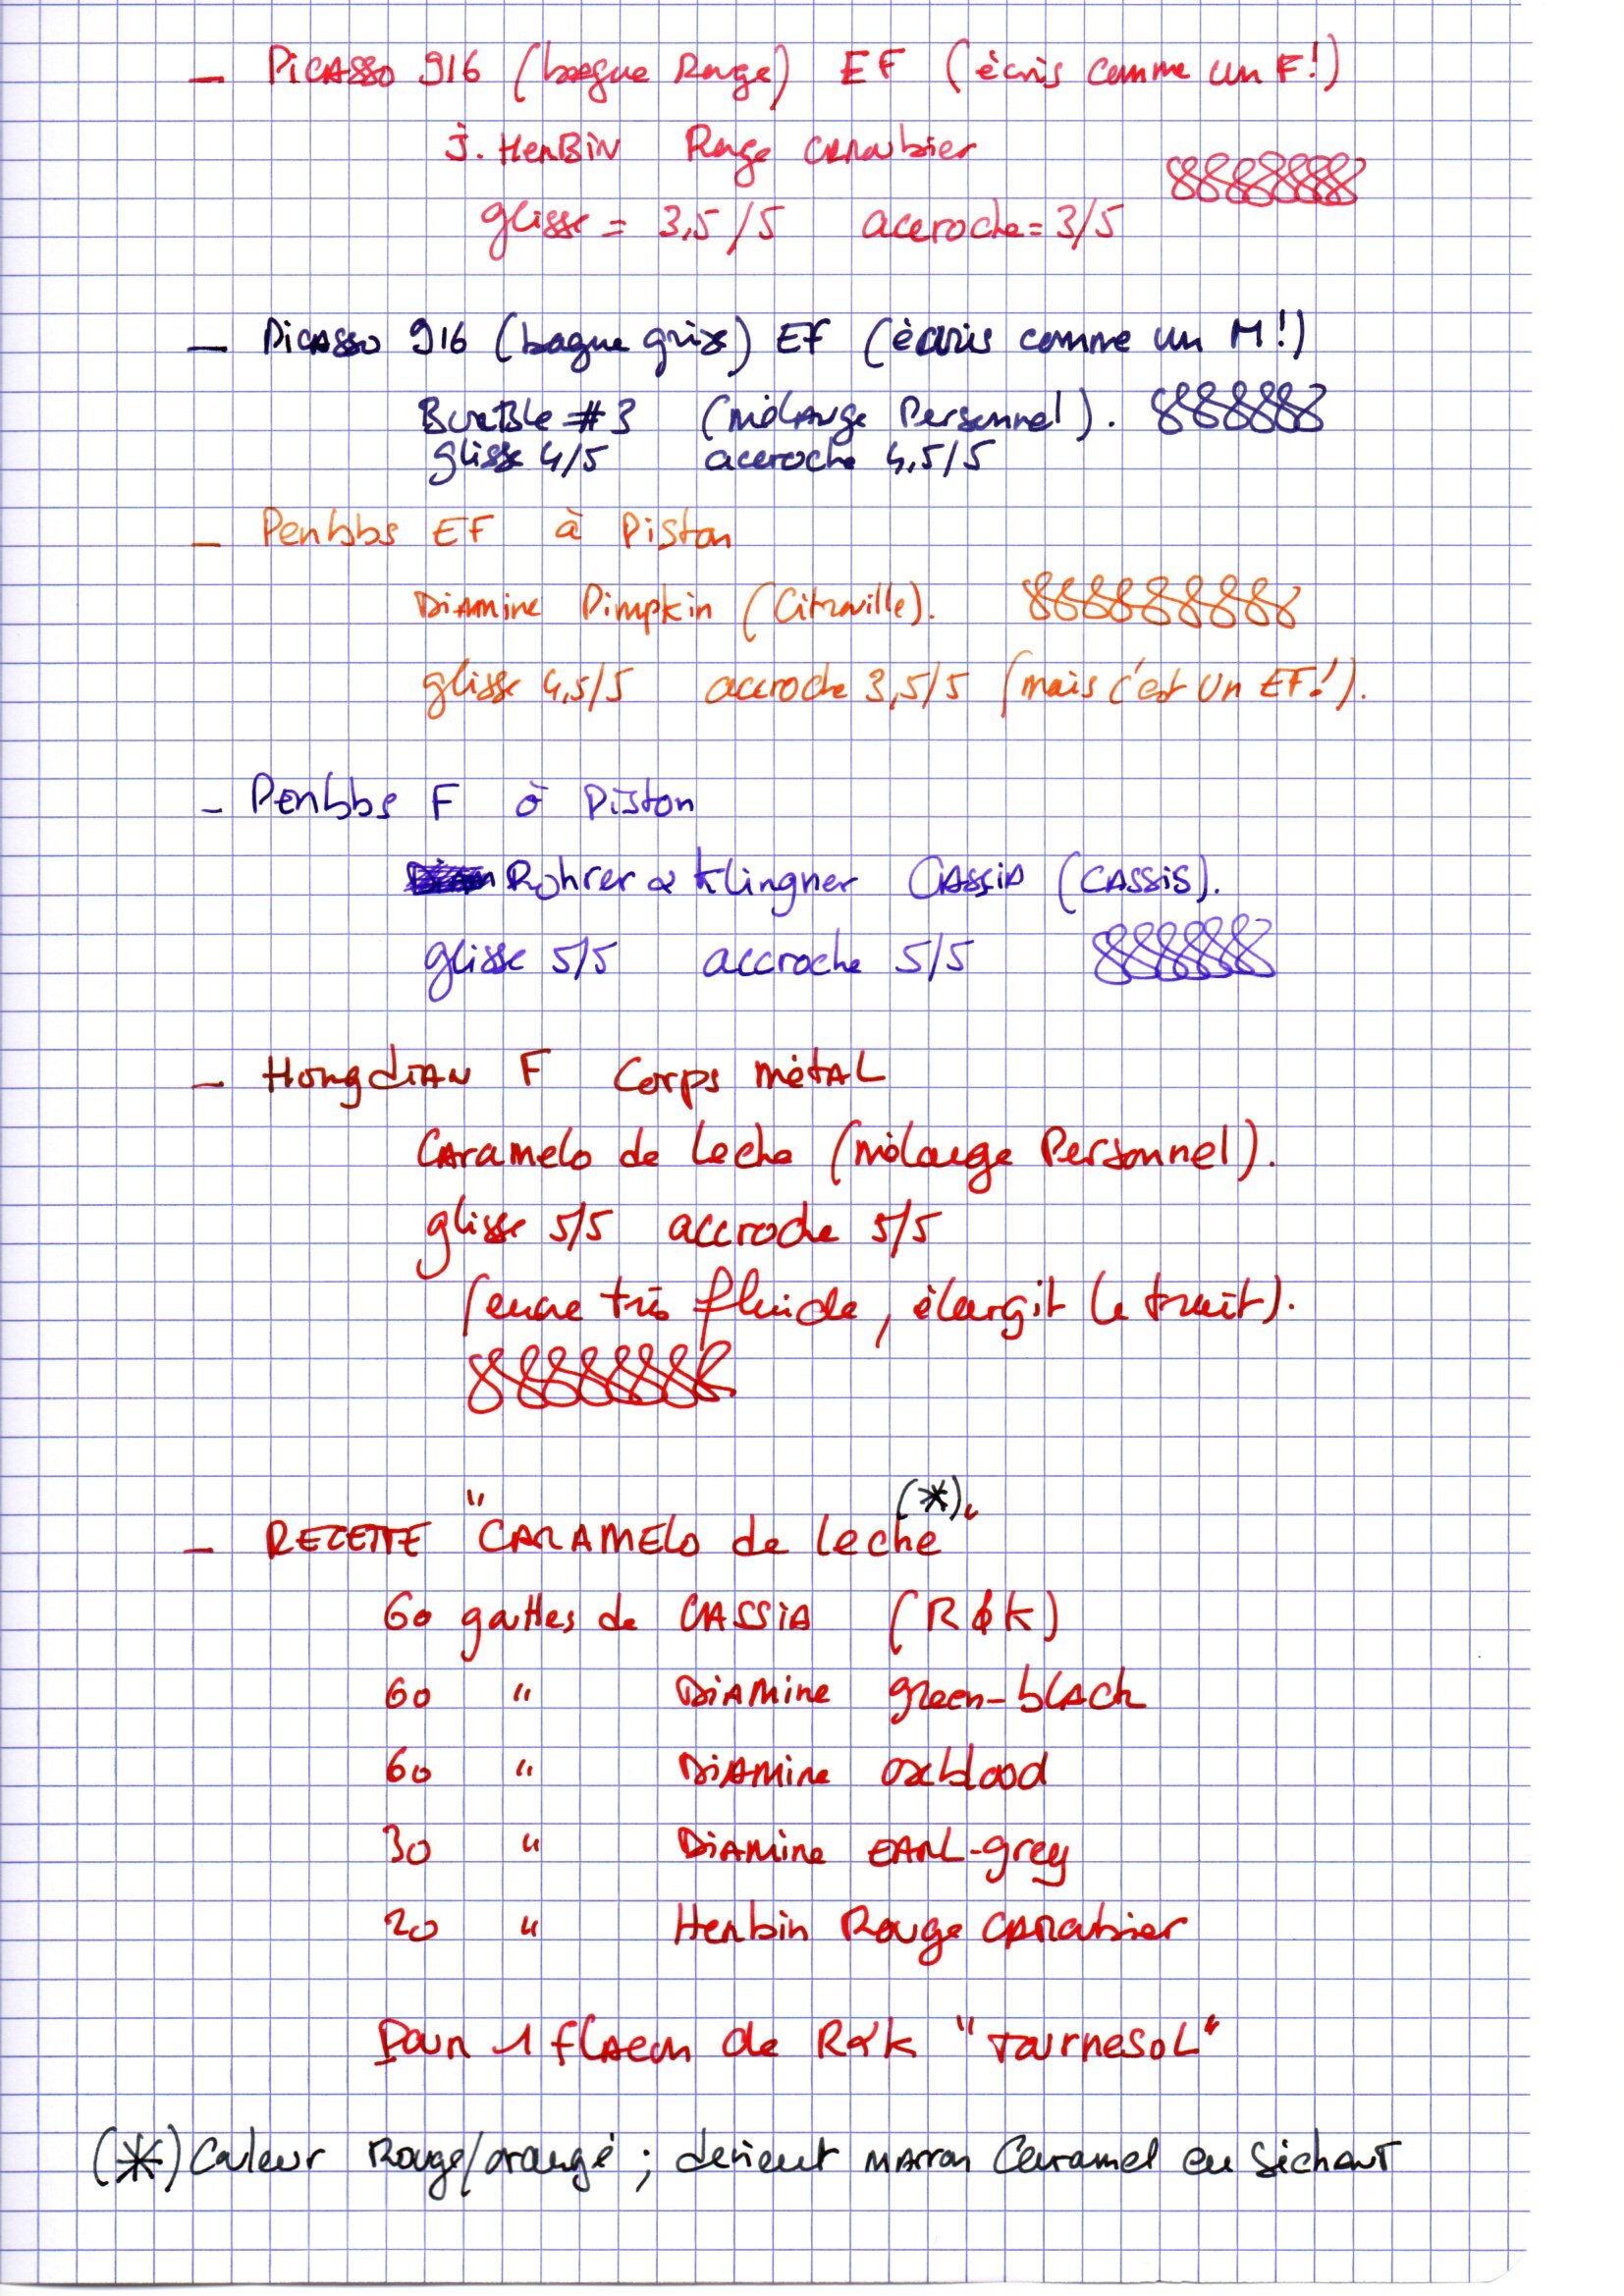 - Picasso 916 (bague Rouge) EF (écris comme un F!)
J. HerBiN Rouge Caroubier
glisse = 3,5/5 accroche = 3/5
- Picasso 916 (bague grise) EF (écris comme un M!)
#3 (mélange Personnel).
glisse 4/5 accroche 4,5/5
- Penbbs EF à Piston
DiAmine Pimpkin (Citrouille).
glisse 4,5/5 accroche 3,5/5 (mais c'est un EF!).
- Penbbs F à Piston
Rohrer & Klingner CASSiA (CASSiS).
glisse 5/5 accroche 5/5
- HongdiAN F Corps métAL
CAramelo de Leche (mélange Personnel).
glisse 5/5 accroche 5/5
(encre très fluide, élargit le trait).
- RECETTE "CARAMELo de leche (*)"
60 gouttes de CASSiA (R&K)
60 " DiAMine green-blAck
60 " DiAMine oxblood
30 " DiAMine EARL-grey
20 " Herbin Rouge CARoubier
Pour 1 flAcon de R&K "TourneSoL"
(*) Couleur Rouge/orangé ; devient mArron Caramel en Séchant